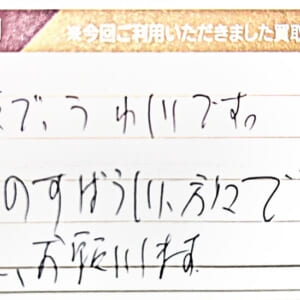 ※今回ご利用いただきました買取
で、うれしいです。
のすばらしい、方々で
、お願いします